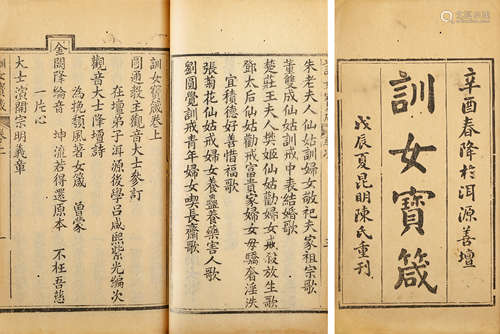 辛酉春降於洱源善壇
訓女寶箴
戊辰夏昆明陳氏重刊
朱老夫人仙姑訓婦女敬祀夫家祖宗歌
董雙成仙姑訓戒中表結婚歌
楚莊王夫人樊姬仙姑勸婦女戒殺放生歌
鄧太后仙姑勸戒富貴家婦女毋驕奢淫泆
宜積德好善惜福歌
張菊花仙姑戒婦女養蠱養藥害人歌
劉圓覺訓戒青年婦女喫長齋歌
訓女寶箴卷上
圓通教主觀音大士參訂
在壇弟子洱源後學呂咸熙紫光編次
觀音大士降壇詩
為挽頹風著女箴
金闕降綸音 坤流若得還原本 不枉吾慈
一片心
大士演闡宗明義章
訓女寶箴